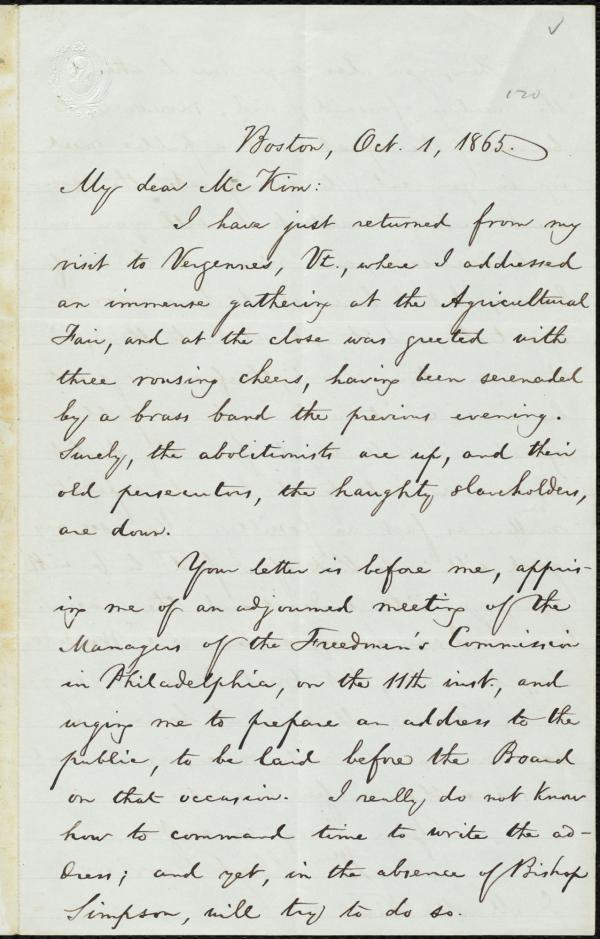 ✓
120
Boston, Oct. 1, 1865.
My dear McKim:
I have just returned from my
visit to Vergennes, Vt., where I addressed
an immense gathering at the Agricultural
Fair, and at the close was greeted with
three rousing cheers, having been serenaded
by a brass band the previous evening.
Surely, the abolitionists are up, and their
old persecutors, the haughty slaveholders,
are down.
Your letter is before me, appris-
ing me of an adjourned meeting of the
Managers of the Freedmen's Commission
in Philadelphia, on the 11th inst., and
urging me to prepare an address to the
public, to be laid before the Board
on that occasion. I really do not know
how to command time to write the ad-
dress; and yet, in the absence of Bishop
Simpson, will try to do so.